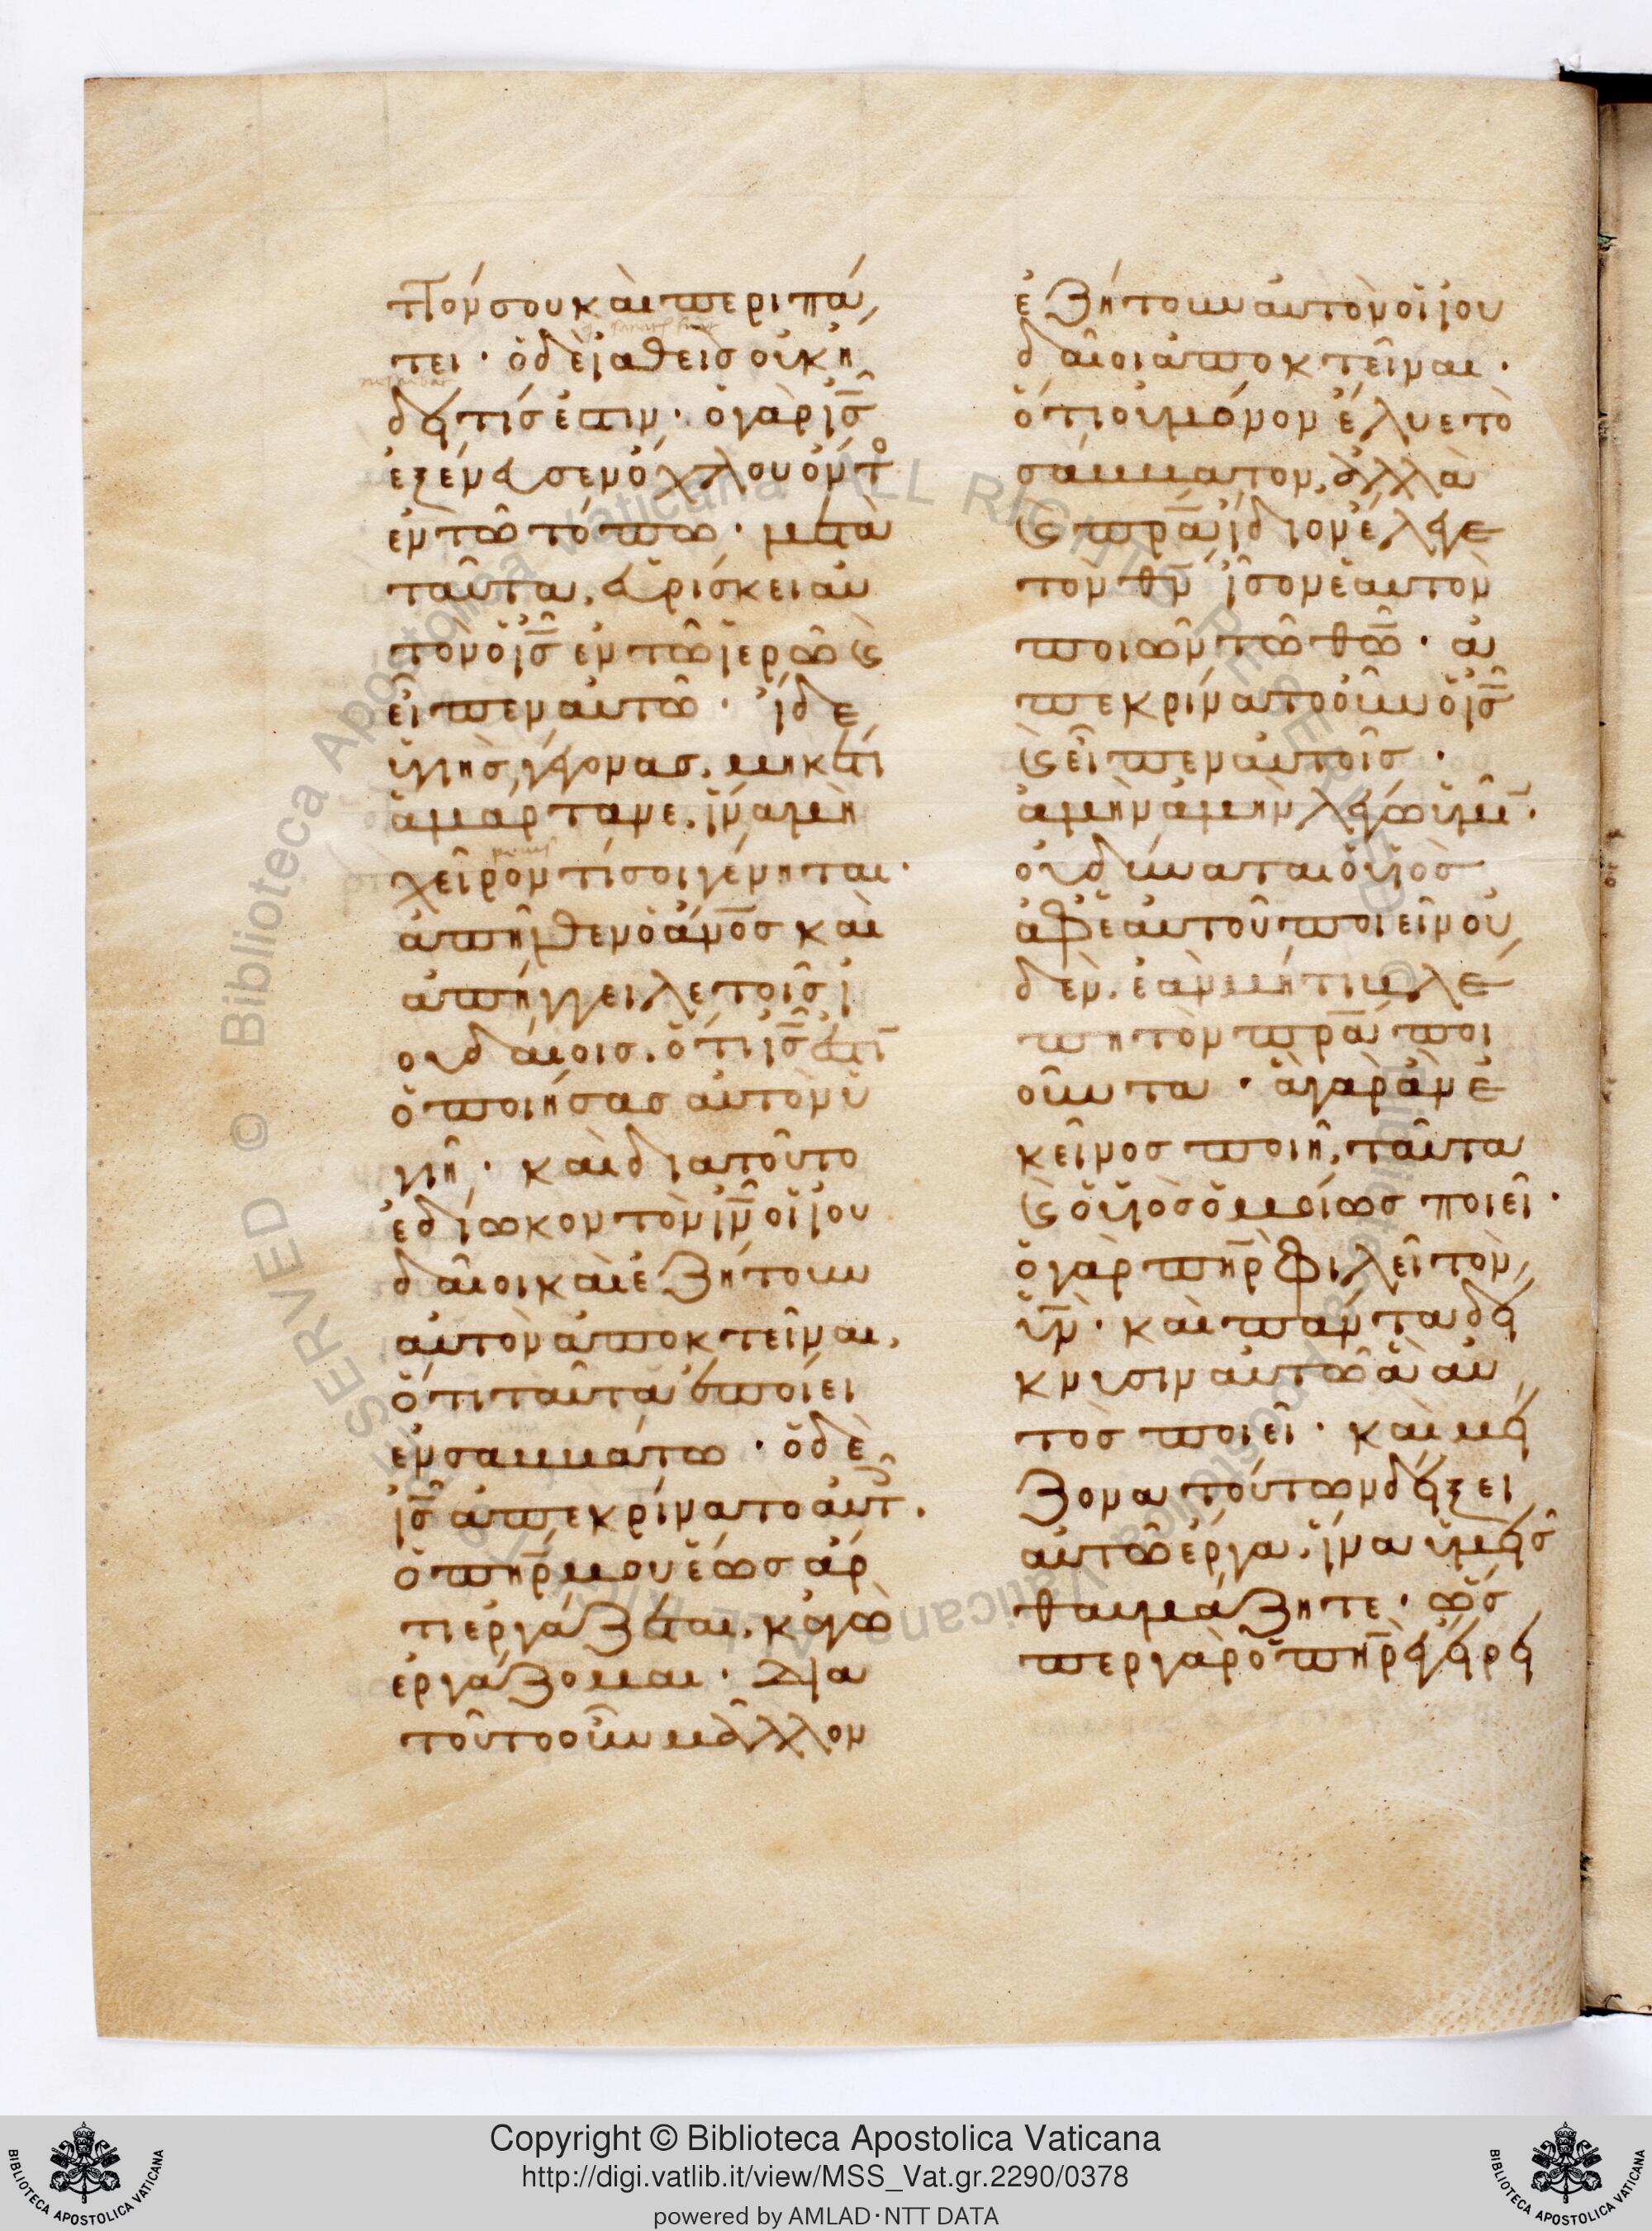 τὸν σου καὶ περιπά
τει · ὁ δὲ ἰαθεὶς οὐκ ἤ
δει τίς ἐστιν · ὁ γὰρ ι̅ς̅
ἐξένευσεν ὄχλου ὄντο
ἐν τῶ τόπω · μετὰ
ταῦτα, εὑρίσκει αὐ
τὸν ὁ ι̅ς̅ ἐν τῶ ἱερῶ ϗ
εἶπεν αὐτῶ · ἴδε
ὑγιὴς γέγονας, μηκέτι
ἁμάρτανε, ἵνα μὴ
χεῖρον τί σοι γένηται ·
ἀπῆλθεν ὁ α̅ν̅ο̅ς̅ καὶ
ἀπήγγειλε τοῖς ἰ
ουδαίοις, ὅτι ι̅ς̅ ἐστὶ
ὁ ποιήσας αὐτὸν ὑ
γιῆ · καὶ διατοῦτο
ἐδίωκον τὸν ι̅ν̅ οἱ ἰου
δαῖοι καὶ ἐζήτουν
αὐτὸν ἀποκτεῖναι,
ὅτι ταῦτα ἐποίει
ἐν σαββάτω · ὁ δὲ
ι̅ς̅ ἀπεκρίνατο αὐτ ·
ὁ π̅η̅ρ̅ μου ἕως ἄρ
τι ἐργάζεται, κἀγὼ
ἐργάζομαι · Δια
τοῦτο οὖν μᾶλλον
ἐζήτουν αὐτὸν οἱ ἰου
δαῖοι ἀποκτεῖναι ·
ὅτι οὐ μόνον ἔλυε τὸ
σάββατον, ἀλλὰ
ϗ π̅ρ̅α̅ ἴδιον ἔλεγε
τὸν θ̅ν̅ ἶσον ἑαυτὸν
ποιῶν τῶ θ̅ω̅ · ἀ
πεκρίνατο οὖν ὁ ι̅ς̅
ϗ εἶπεν αὐτοῖς ·
ἀμὴν ἀμὴν λέγω ὑμῖ ·
οὐ δύναται ὁ υἱὸς
ἀφ' ἑαυτοῦ ποιεῖν οὐ
δὲν, ἐὰν μή τι βλέ
πη τὸν π̅ρ̅α̅ ποι
οῦντα · ἃ γὰρ ἂν ἐ
κεῖνος ποιῆ, ταῦτα
ϗ ὁ υἱὸς ὁμοίως ποιεῖ ·
ὁ γὰρ π̅η̅ρ̅ φιλεῖ τὸν
υ̅ν̅ · καὶ πάντα δεί
κνυσιν αὐτῶ ἃ αὐ
τὸς ποιεῖ · καὶ μεί
ζονα τούτων δείξει
αὐτῶ ἔργα, ἵνα ὑμεῖς
θαυμάζητε · ὥς
περ γὰρ ὁ π̅η̅ρ̅ ἐγείρει
Copyright © Biblioteca Apostolica Vaticana
http://digi.vatlib.it/view/MSS_Vat.gr.2290/0378
powered by AMLAD·NTT DATA